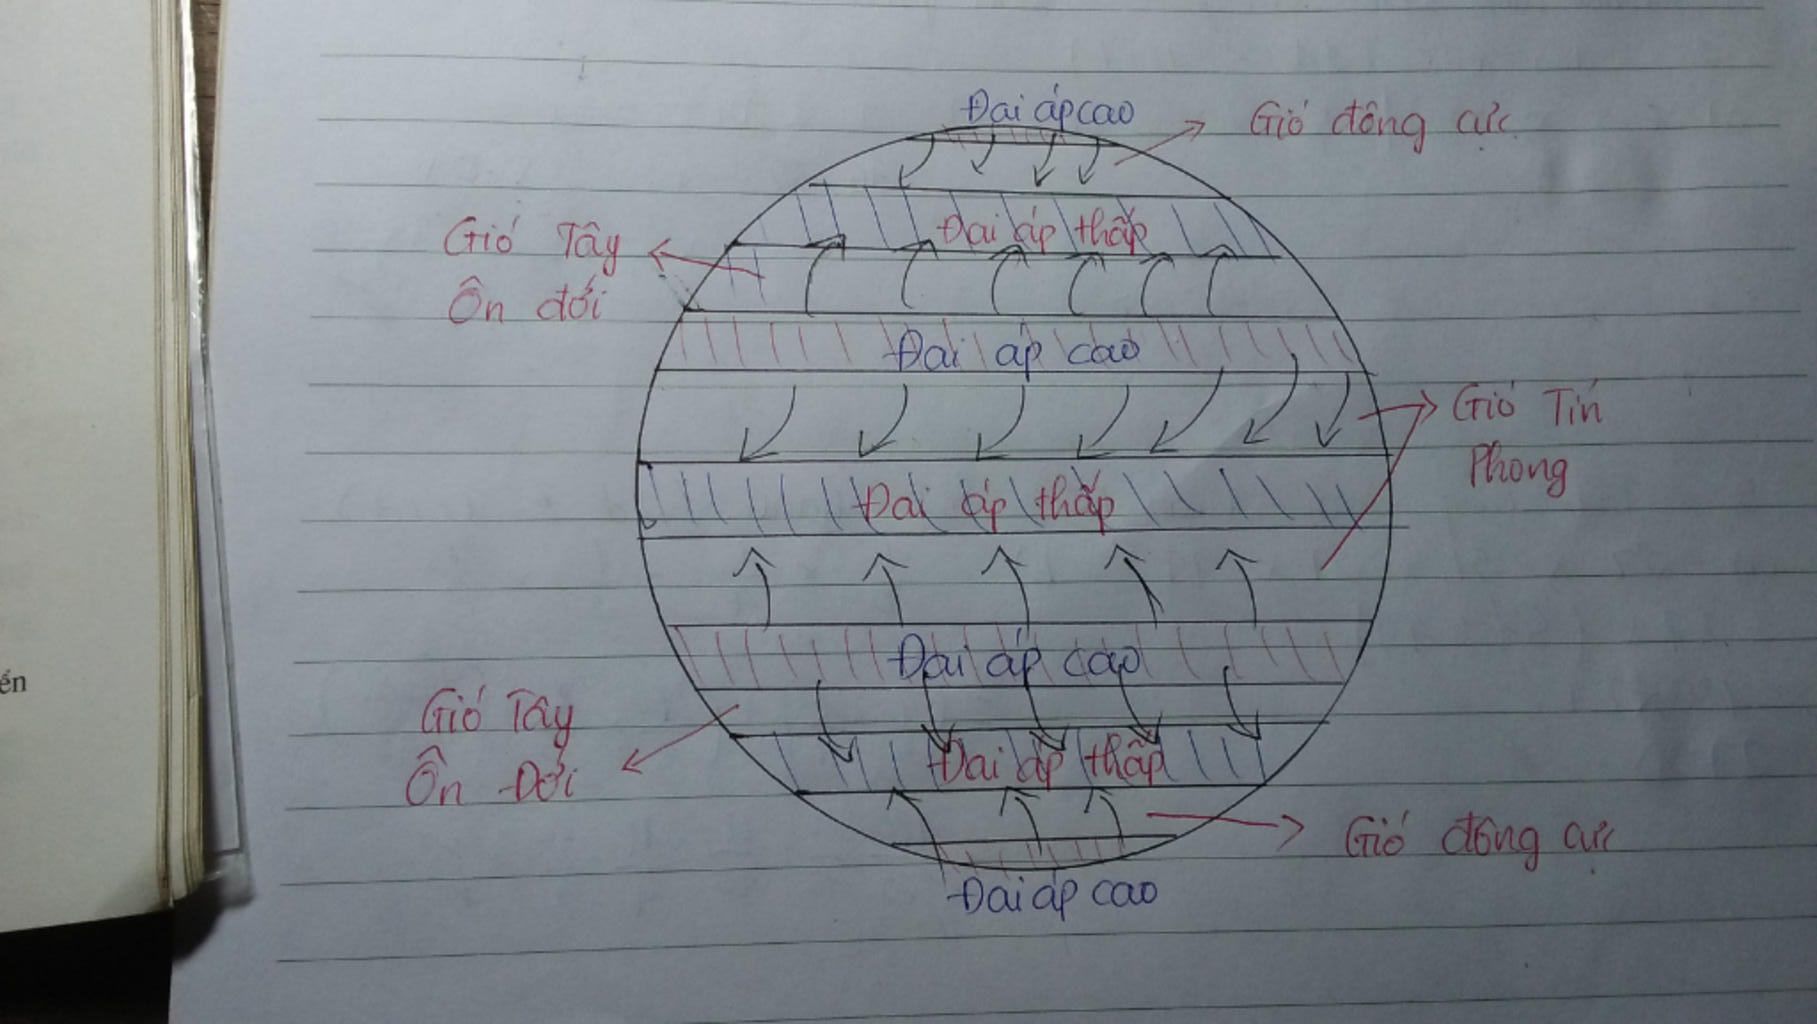 Đai áp cao
Gió đông cực
Đai áp thấp
Gió Tây
Ôn đới
Đai áp cao
Gió Tín
Phong
Đai áp thấp
Đai áp cao
ển
Gió Tây
Ôn Đới
Đai áp thấp
Gió đông cực
Đai áp cao